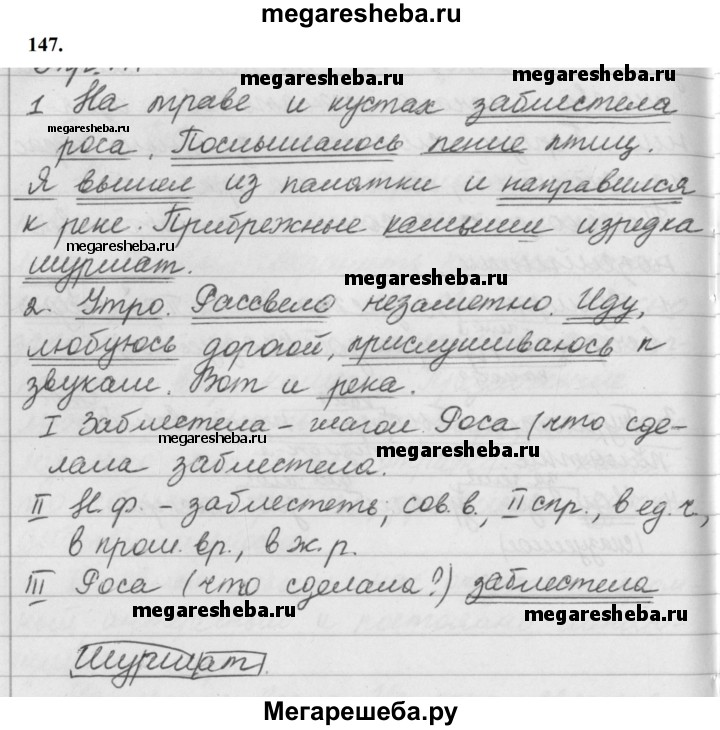 megaresheba.ru
147.
megaresheba.ru megaresheba.ru
1 На траве и кустах заблестела
megaresheba.ru
роса. Послышалось пение птиц.
Я вышел из палатки и направился
к реке. Прибрежные камыши изредка
megaresheba.ru
шуршат.
megaresheba.ru
2. Утро. Рассвело незаметно. Иду,
любуюсь дорогой, прислушиваюсь к
звукам. Вот и река.
I Заблестела – глагол. Роса (что сде-
megaresheba.ru megaresheba.ru
лала заблестела.
II Н.ф. – заблестеть, сов.в., II спр., в ед.ч.,
в прош. вр., в ж.р.
III Роса (что сделала?) заблестела
megaresheba.ru megaresheba.ru
Шуршат.
Мегарешеба.ру